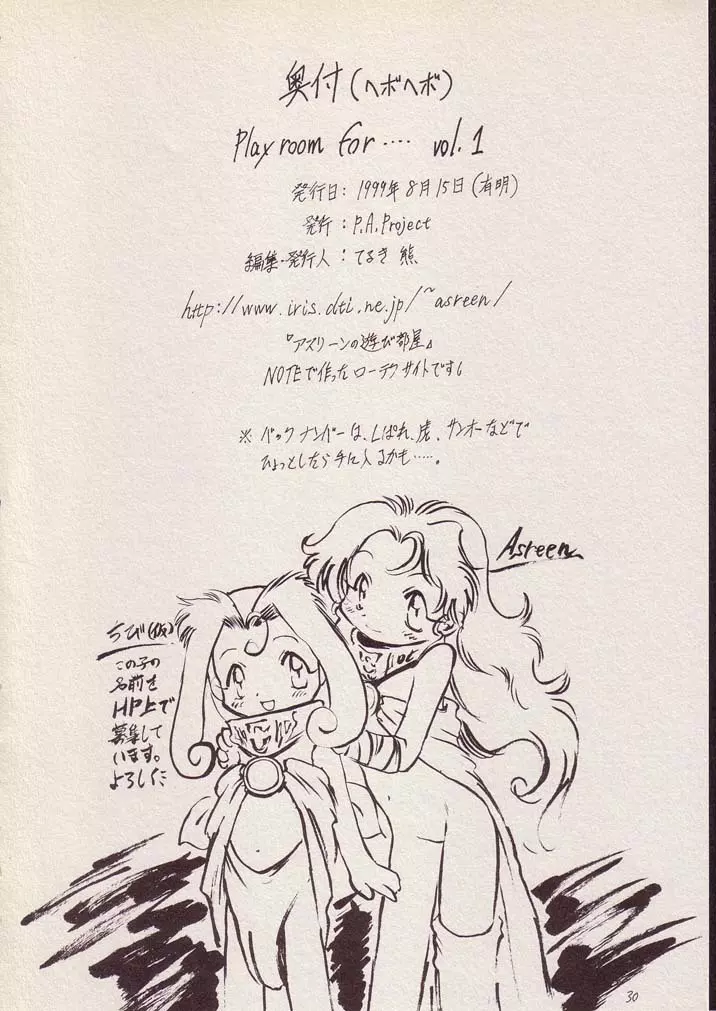 奥付(ヘボヘボ)
Play room for‥‥ vol.1
発行日:1999年8月15日(有明)
発行:P.A.Project
編集・発行人:てるき熊
http://www.iris.dti.ne.jp/~asreen/
『アスリーンの遊び部屋』
NOTEで作ったローテクサイトです!
※バックナンバーは、しぱれ、虎、サンオーなどで
ひょっとしたら手に入るかも‥‥。
Asreen
ちび(仮)
この子の
名前を
HP上で
募集して
います。
よろしく
30